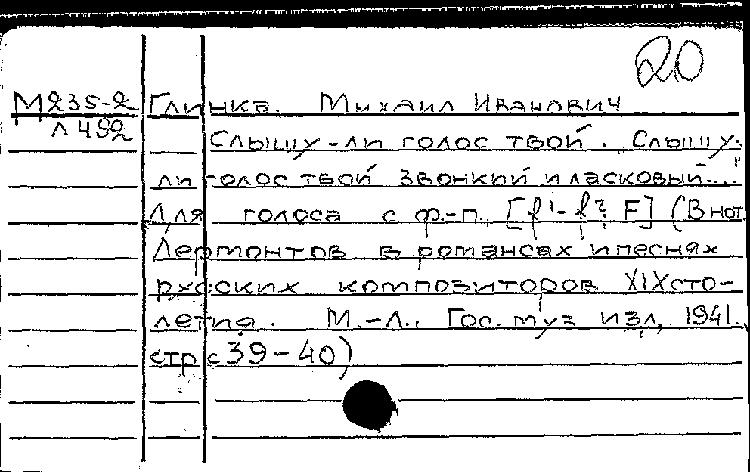 20
М235-2 Глинка. Михаил Иванович
Л492
Слышу-ли голос твой. Слышу-
ли голос твой звонкий и ласковый..."
Для голоса с ф.-п. [f¹-f², F] (В нот.
Лермонтов в романсах и песнях
русских композиторов XIX сто-
летия. М.-Л., Гос. муз. изд, 1941.
стр с 39-40)